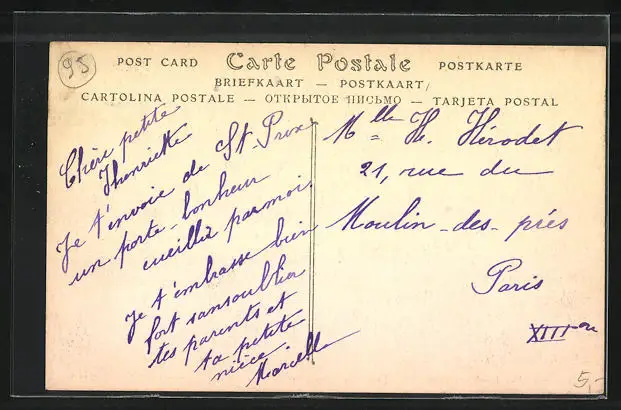 95
POST CARD Carte Postale POSTKARTE
BRIEFKAART — POSTKAART
CARTOLINA POSTALE — ОТКРЫТОЕ ПИСЬМО — TARJETA POSTAL
Chère petite
Henriette
Je t'envoie de St-Prix
un porte-bonheur
cueilli par moi.
Je t'embrasse bien
fort sans oublier
tes parents et
ta petite
nièce
Marcelle
Mlle H. Hérodet
21, rue du
Moulin-des-prés
Paris
XIIIe
5,-